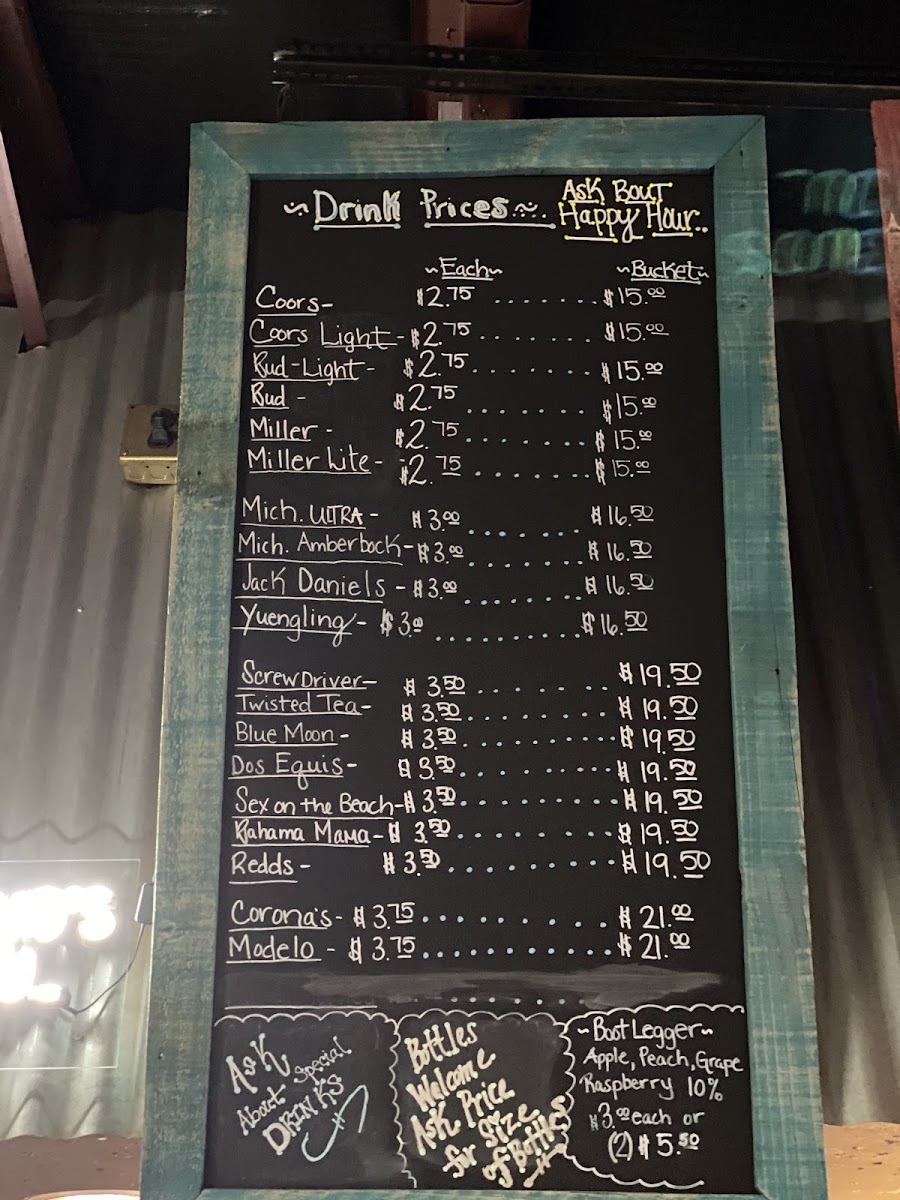 ~Drink Prices~. Ask Bout
Happy Hour..
~Each~ ~Bucket~
Coors- $2.75 ........ $15.00
Coors Light- $2.75 ....... $15.00
Bud-Light- $2.75 ........ $15.00
Bud - $2.75 ....... $15.00
Miller - $2.75 ....... $15.00
Miller Lite- $2.75 ....... $15.00
Mich. ULTRA - $3.00 ...... $16.50
Mich. Amberbock- $3.00 ....... $16.50
Jack Daniels - $3.00 ....... $16.50
Yuengling- $3.00 .......... $16.50
ScrewDriver- $3.50 ....... $19.50
Twisted Tea- $3.50 ........ $19.50
Blue Moon - $3.50 ........ $19.50
Dos Equis- $3.50 ........ $19.50
Sex on the Beach- $3.50 ......... $19.50
Bahama Mama- $3.50 ......... $19.50
Redds - $3.50 .......... $19.50
Corona's- $3.75 .......... $21.00
Modelo - $3.75 .......... $21.00
Ask
About Special
DRINKS
Bottles
Welcome
Ask Price
for Size
of Bottles
~Boot Legger~
Apple, Peach, Grape
Raspberry 10%
$3.00 each or
(2) $5.50